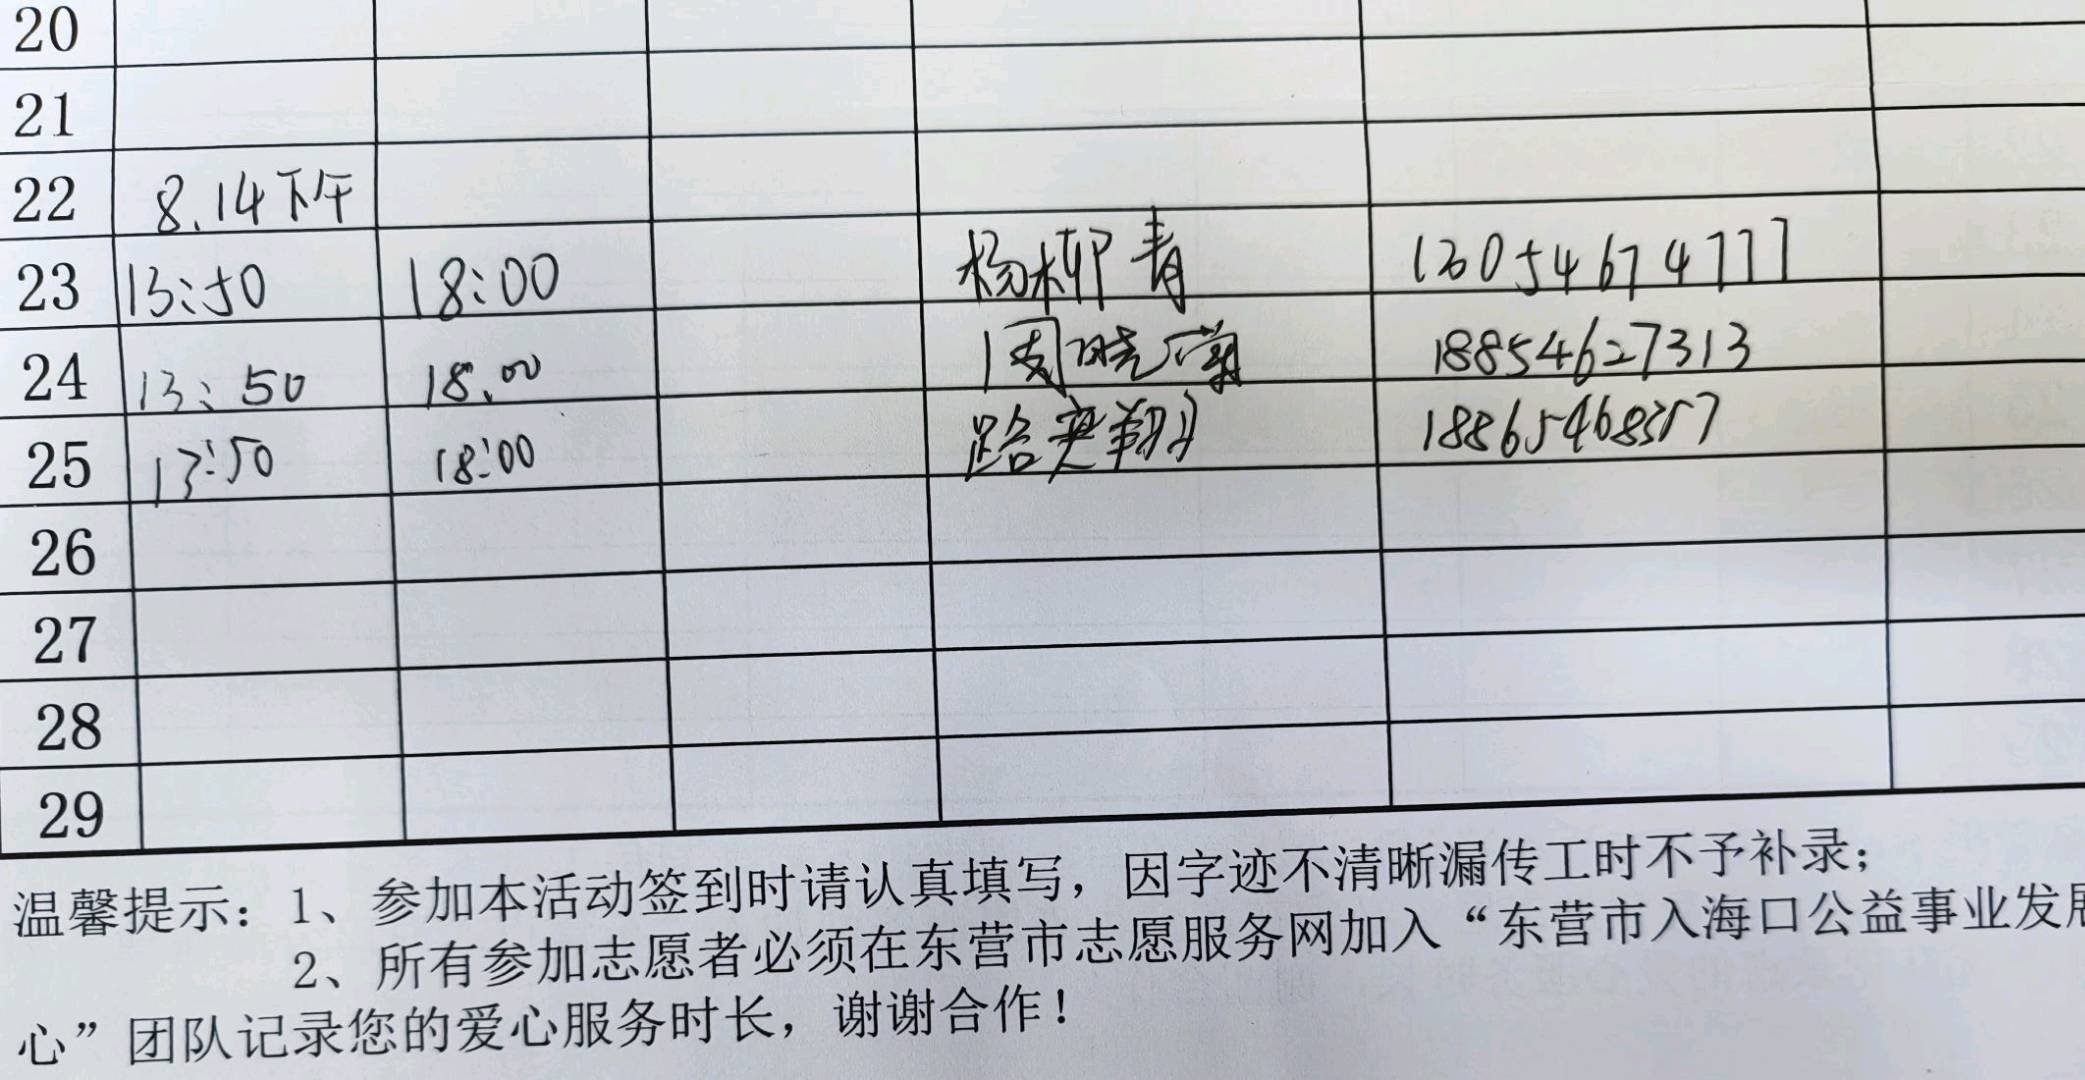 20
21
22 8.14下午
23 13:50 18:00 杨柳青 13054674777
24 13:50 18:00 周晓 18854627313
25 13:50 18:00 路 18865468357
26
27
28
29
温馨提示：1、参加本活动签到时请认真填写，因字迹不清晰漏传工时不予补录；
2、所有参加志愿者必须在东营市志愿服务网加入“东营市入海口公益事业发展
心”团队记录您的爱心服务时长，谢谢合作！